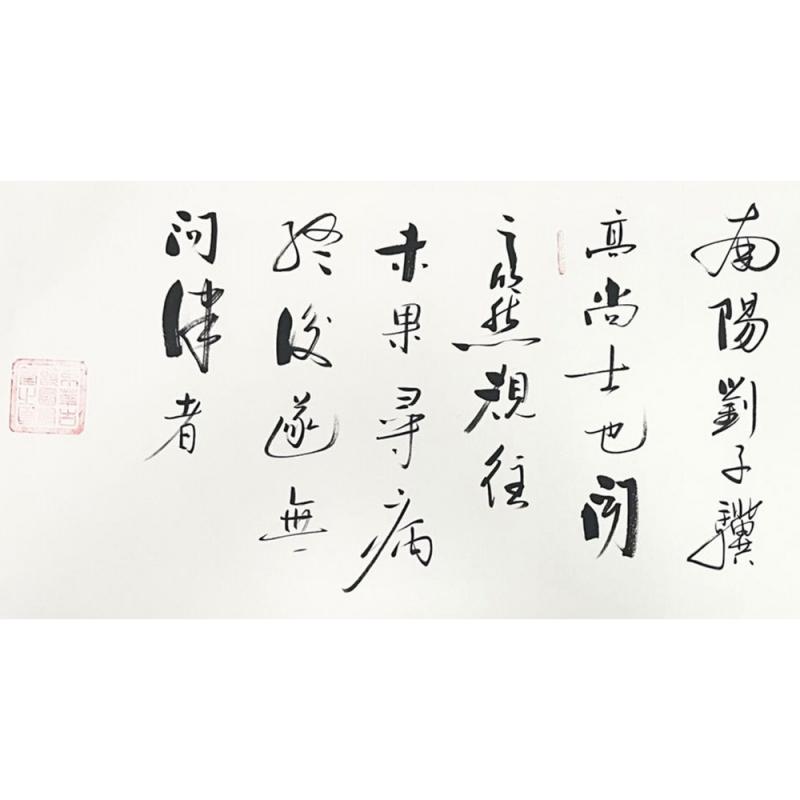 南陽劉子驥
高尚士也聞
之欣然規往
未果尋病
終後遂無
問津者